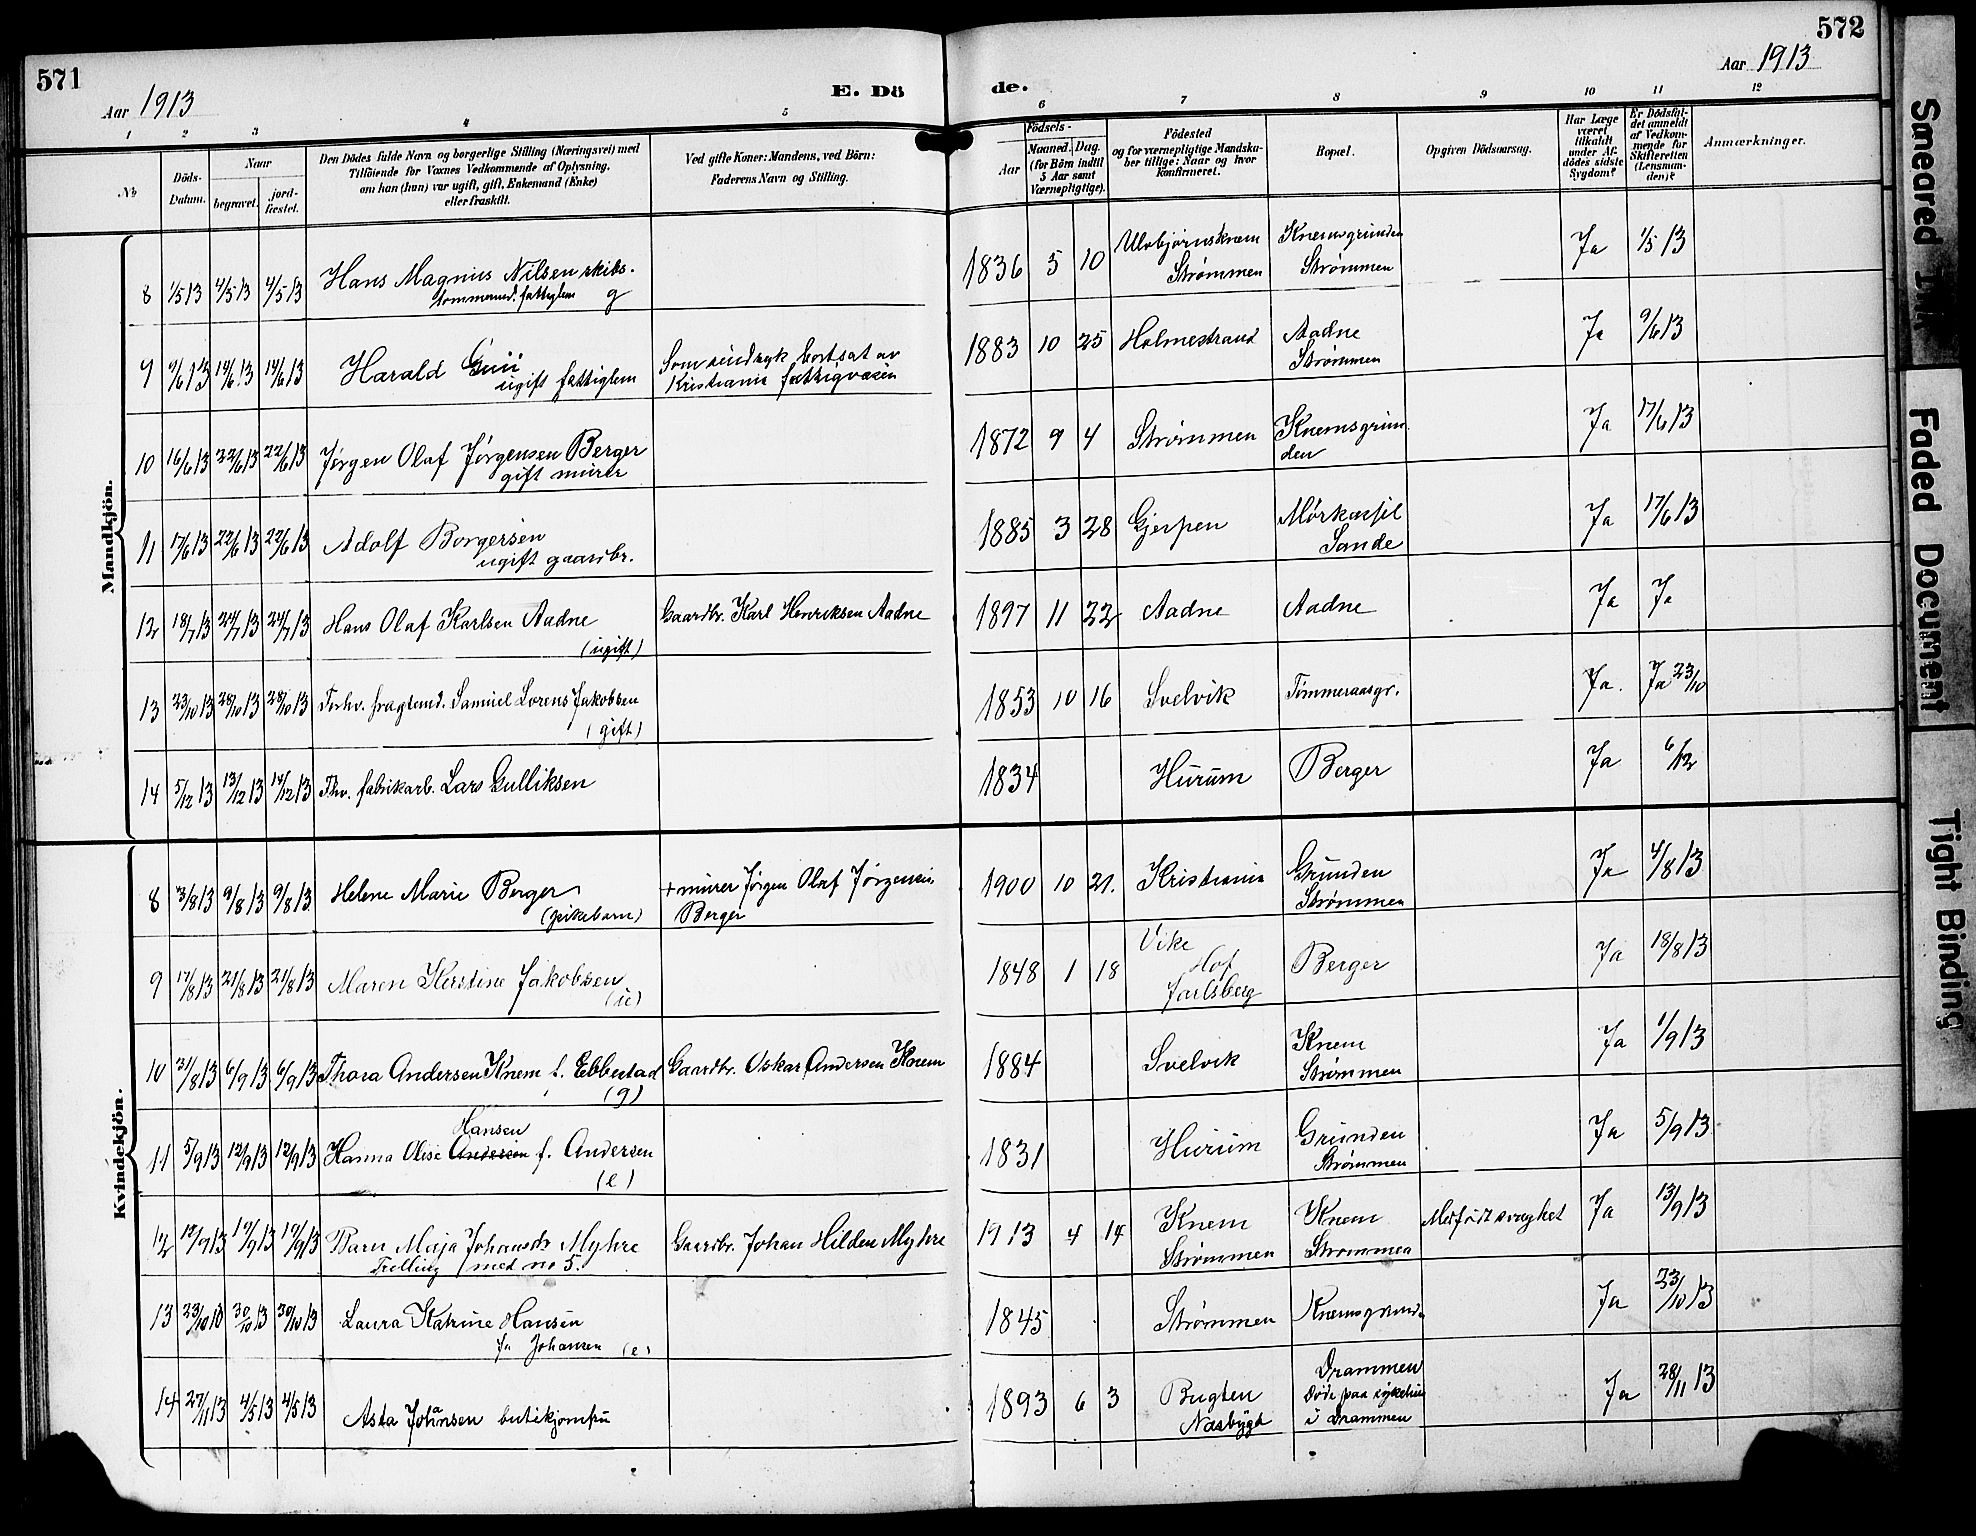 571
Aar 1913
E. Dö
de.
572
Aar 1913
1 2 3 4 5 6 7 8 9 10 11 12
No
Döds-Datum.
Naar
begravet.
jord-fæstet.
Den Dödes fulde Navn og borgerlige Stilling (Næringsvei) med
Tilföiende for Voxnes Vedkommende af Oplysning,
om han (hun) var ugift, gift, Enkemand (Enke)
eller fraskilt.
Ved gifte Koner: Mandens, ved Börn:
Faderens Navn og Stilling.
Födsels-
Aar
Maaned. Dag.
(for Börn indtil
5 Aar samt
Værnepligtige).
Födested
og for værnepligtige Mandska-
ber tillige: Naar og hvor
Konfirmeret.
Bopæl.
Opgiven Dödsaarsag.
Har Læge
været
tilkaldt
under Af-
dödes sidste
Sygdom?
Er Dödsfal-
det anmeldt
af Vedkom-
mende for
Skifteretten
(Lensman-
den)?
Anmærkninger.
Mandkjön.
8 1/5 13 4/5 13 4/5 13 Hans Magnus Nilsen skibs.
tømmermd. fattiglem g
1836 5 10 Ulvbjørnsknem
Strømmen
Knemsgrunden
Strømmen
Ja 1/5 13
9 9/6 13 14/6 13 14/6 13 Harald
ugift fattiglem
Som sindsyk bortsat av
Kristiania fattigvæsen
1883 10 25 Holmestrand Aadne
Strømmen
Ja 9/6 13
10 16/6 13 22/6 13 22/6 13 Jørgen Olaf Jørgensen Berger
gift murer
1872 9 4 Strømmen Knemsgrun
den
Ja 17/6 13
11 17/6 13 22/6 13 22/6 13 Adolf Borgersen
ugift gaardbr.
1885 3 28 Gjerpen
Sande
Ja 17/6 13
12 18/7 13 24/7 13 24/7 13 Hans Olaf Karlsen Aadne
(ugift)
Gaardbr. Karl Henriksen Aadne
1897 11 22 Aadne Aadne Ja Ja
13 23/10 13 28/10 13 28/10 13 Forhv. fragtemd. Samuel Lorens Jakobsen
(gift)
1853 10 16 Svelvik Tømmeraasgr. Ja. Ja 23/10
14 5/12 13 13/12 13 14/12 13 Fhv. fabrikarb. Lars Gulliksen
1834 Hurum Berger Ja 6/12
Kvindekjön.
8 3/8 13 9/8 13 9/8 13 Helene Marie Berger
(pikebarn)
+ murer Jørgen Olaf Jørgensen
Berger
1900 10 21. Kristiania Grunden
Strømmen
Ja 4/8 13
9 17/8 13 21/8 13 21/8 13 Maren Kirstine Jakobsen
(u)
1848 1 18 Vike
Hof
Jarlsberg
Berger Ja 18/8 13
10 31/8 13 6/9 13 6/9 13 Thora Andersen Knem f. Ebbestad
(g)
Gaardbr. Oskar Andersen Knem
1884 Svelvik Knem
Strømmen
Ja 1/9 13
Hansen
11 5/9 13 12/9 13 12/9 13 Hanna Olise Andersen f. Andersen
(e)
1831 Hurum Grunden
Strømmen
Ja 5/9 13
12 12/9 13 19/9 13 19/9 13 Barn Maja Johansdr Myhre
Tvilling med no 5.
Gaardbr. Johan Hilden Myhre
1913 4 14 Knem
Strømmen
Knem
Strømmen
Medfødt svaghet Ja 13/9 13
13 23/10 13 30/10 13 30/10 13 Laura Katrine Hansen
f. Johansen (e)
1845 Strømmen Knemsgrunden Ja 23/10 13
14 27/11 13 4/5 13 4/5 13 Asta Johansen butikjomfru
1893 6 3 Bugten
Næsbygd
Drammen
Døde paa sykehus
i Drammen
Ja 28/11 13
Smeared Ink
Faded Document
Tight Binding